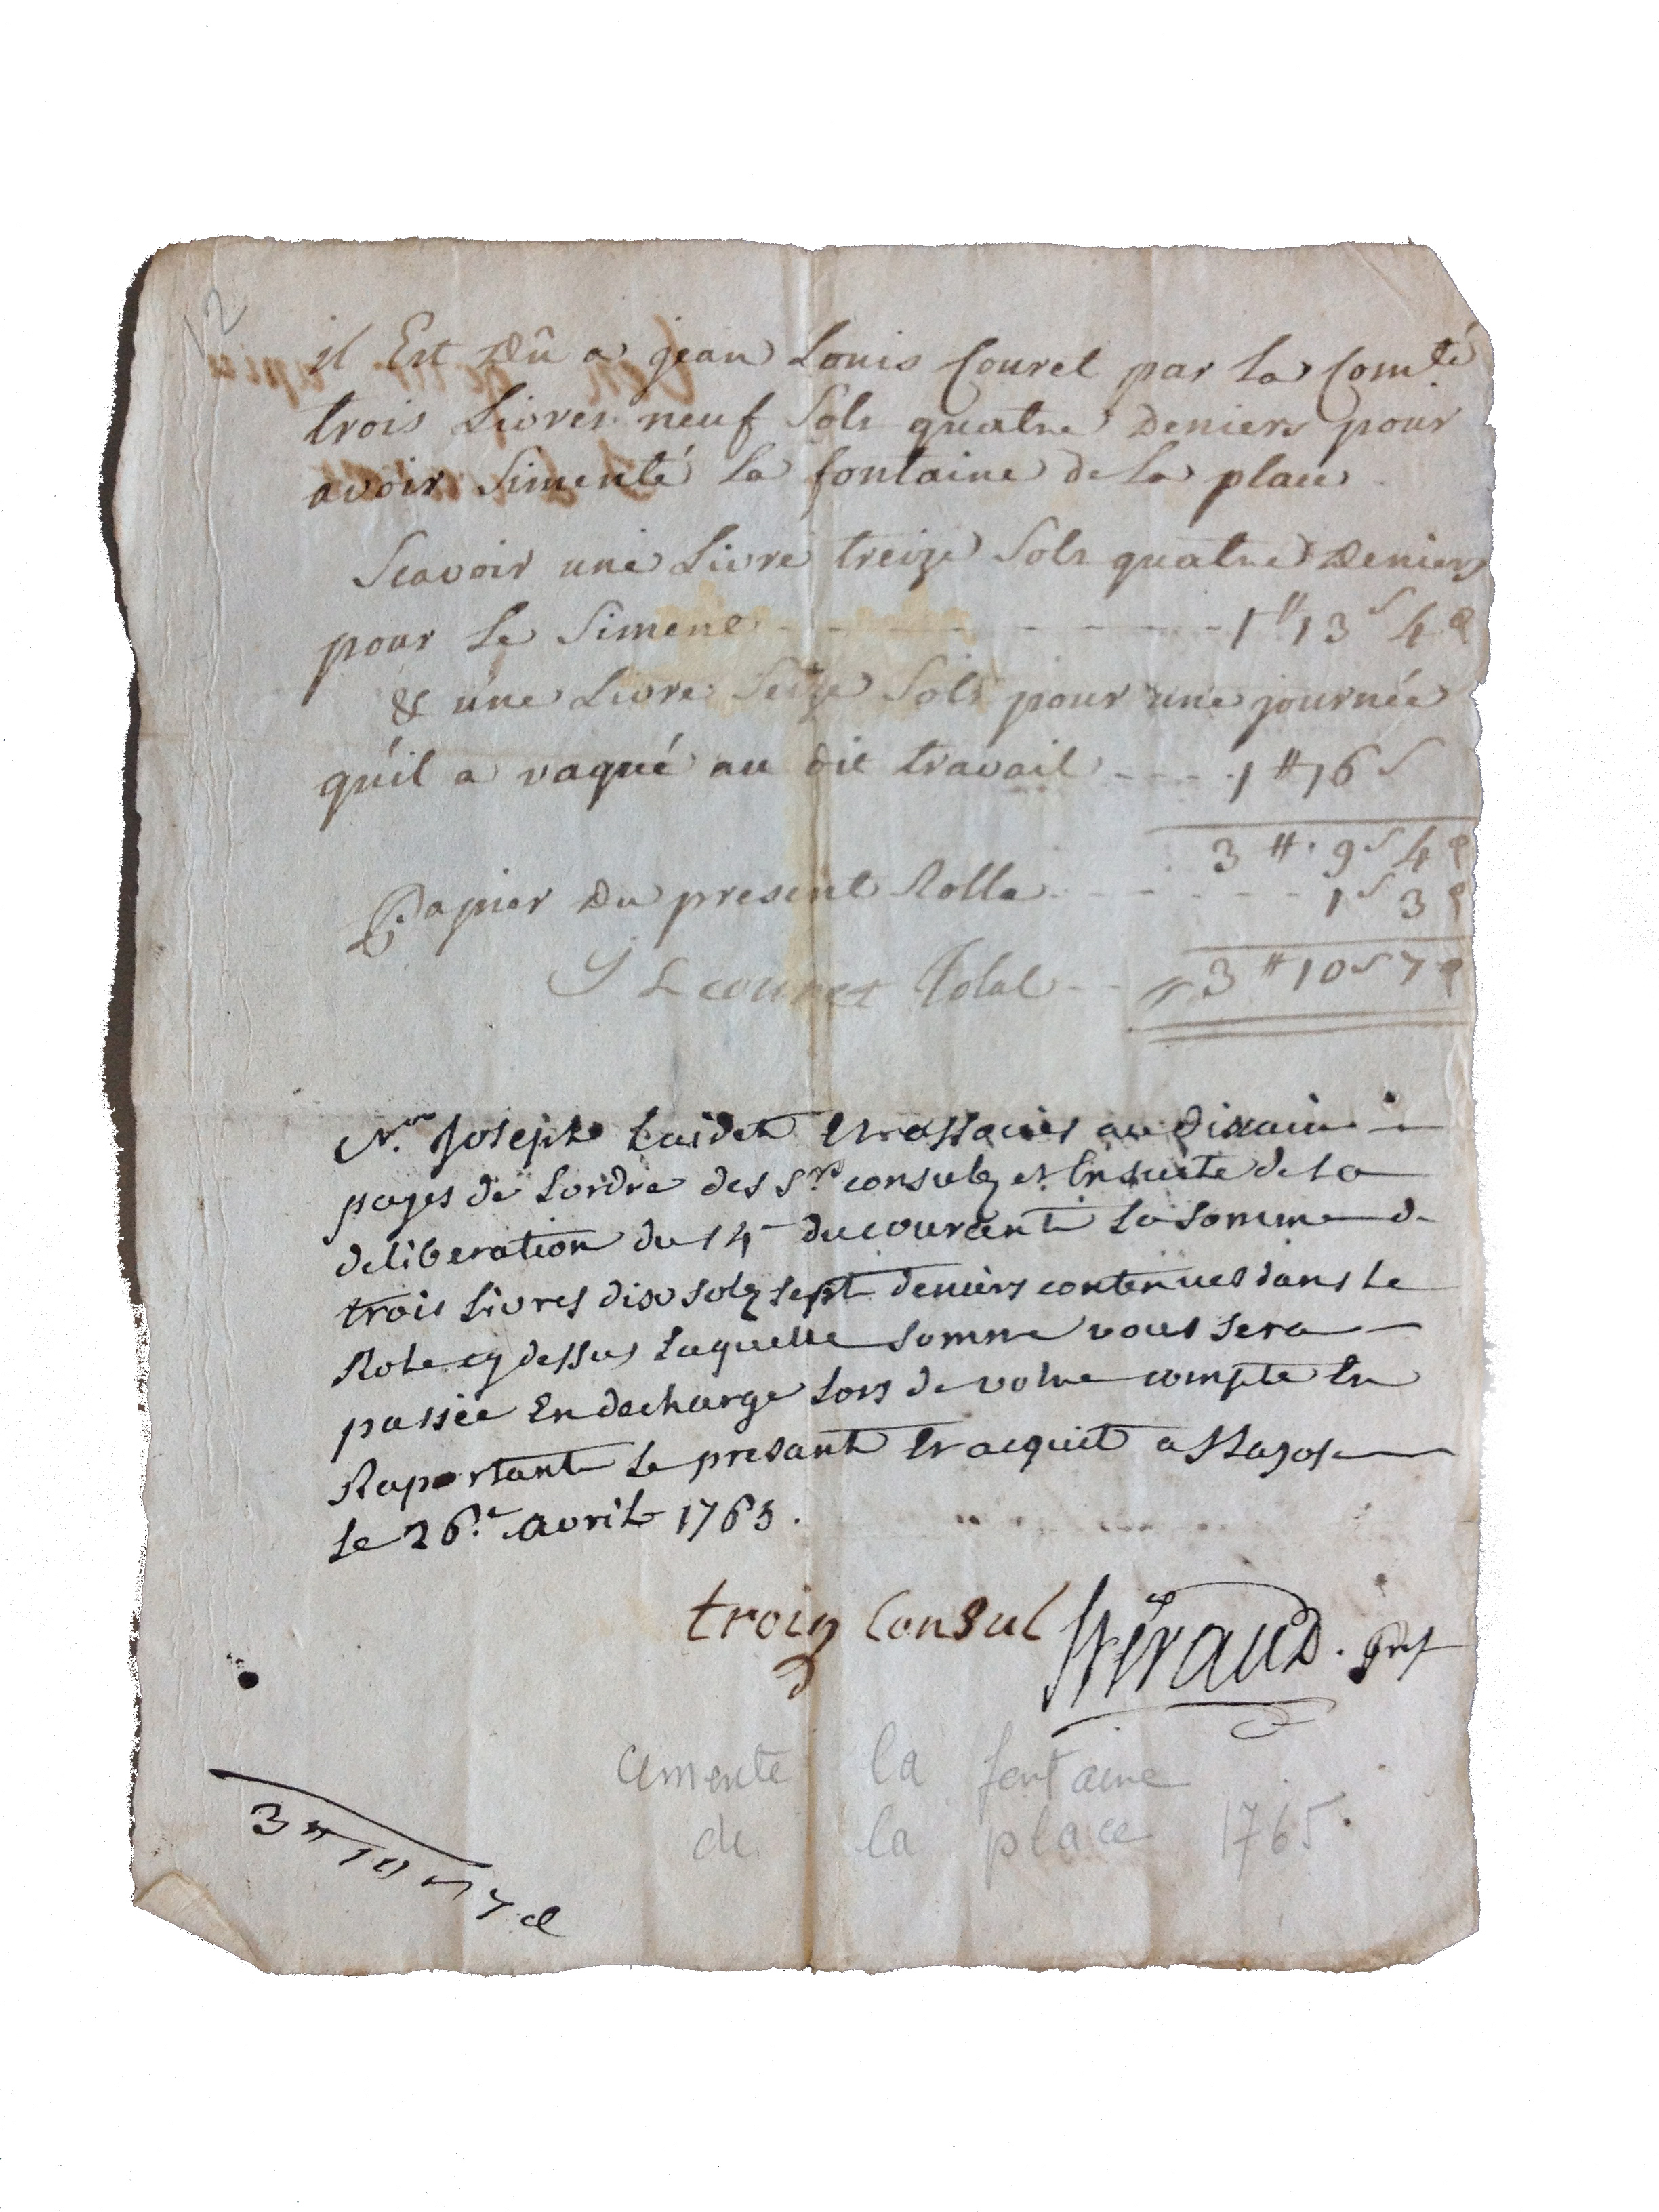 12
il Est Dû a jean Louis Couret par la Comté
trois Livres neuf Sols quatre Deniers pour
avoir Simenté La fontaine de La place
Scavoir une Livre treize Sols quatre Deniers
pour Le Siment - - - - - - 1 ₶ 13 s 4 d
& une Livre Seize Sols pour une journée
qu'il a vaqué au dit travail - - - 1 ₶ 16 s
3 ₶ 9 s 4 d
Papier Du present Rolle - - - - - 1 s 3 d
J L couret Total - - 3 ₶ 10 s 7 d
Joseph Laidet et associés au
payes de Lordre des Srs consulz et Ensuite de La
deliberation du 14 du courant La Somme de
trois Livres dix solz sept deniers contenues dans Le
Role cy dessus Laquelle somme vous sera
passée En decharge Lors de votre compte En
Raportant Le presant et acquit a
Le 26e avril 1765.
troin Consul
Giraud
3 ₶ 10 s 7 d
cimente la fontaine
de la place 1765.